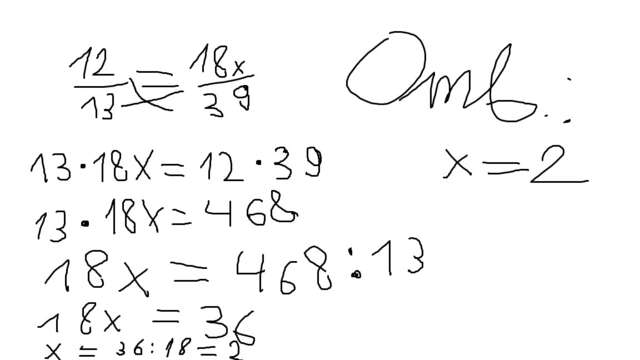 12/13 = 18x/39
13 · 18x = 12 · 39
13 · 18x = 468
18x = 468 : 13
18x = 36
x = 36 : 18 = 2
Отв.:
x = 2